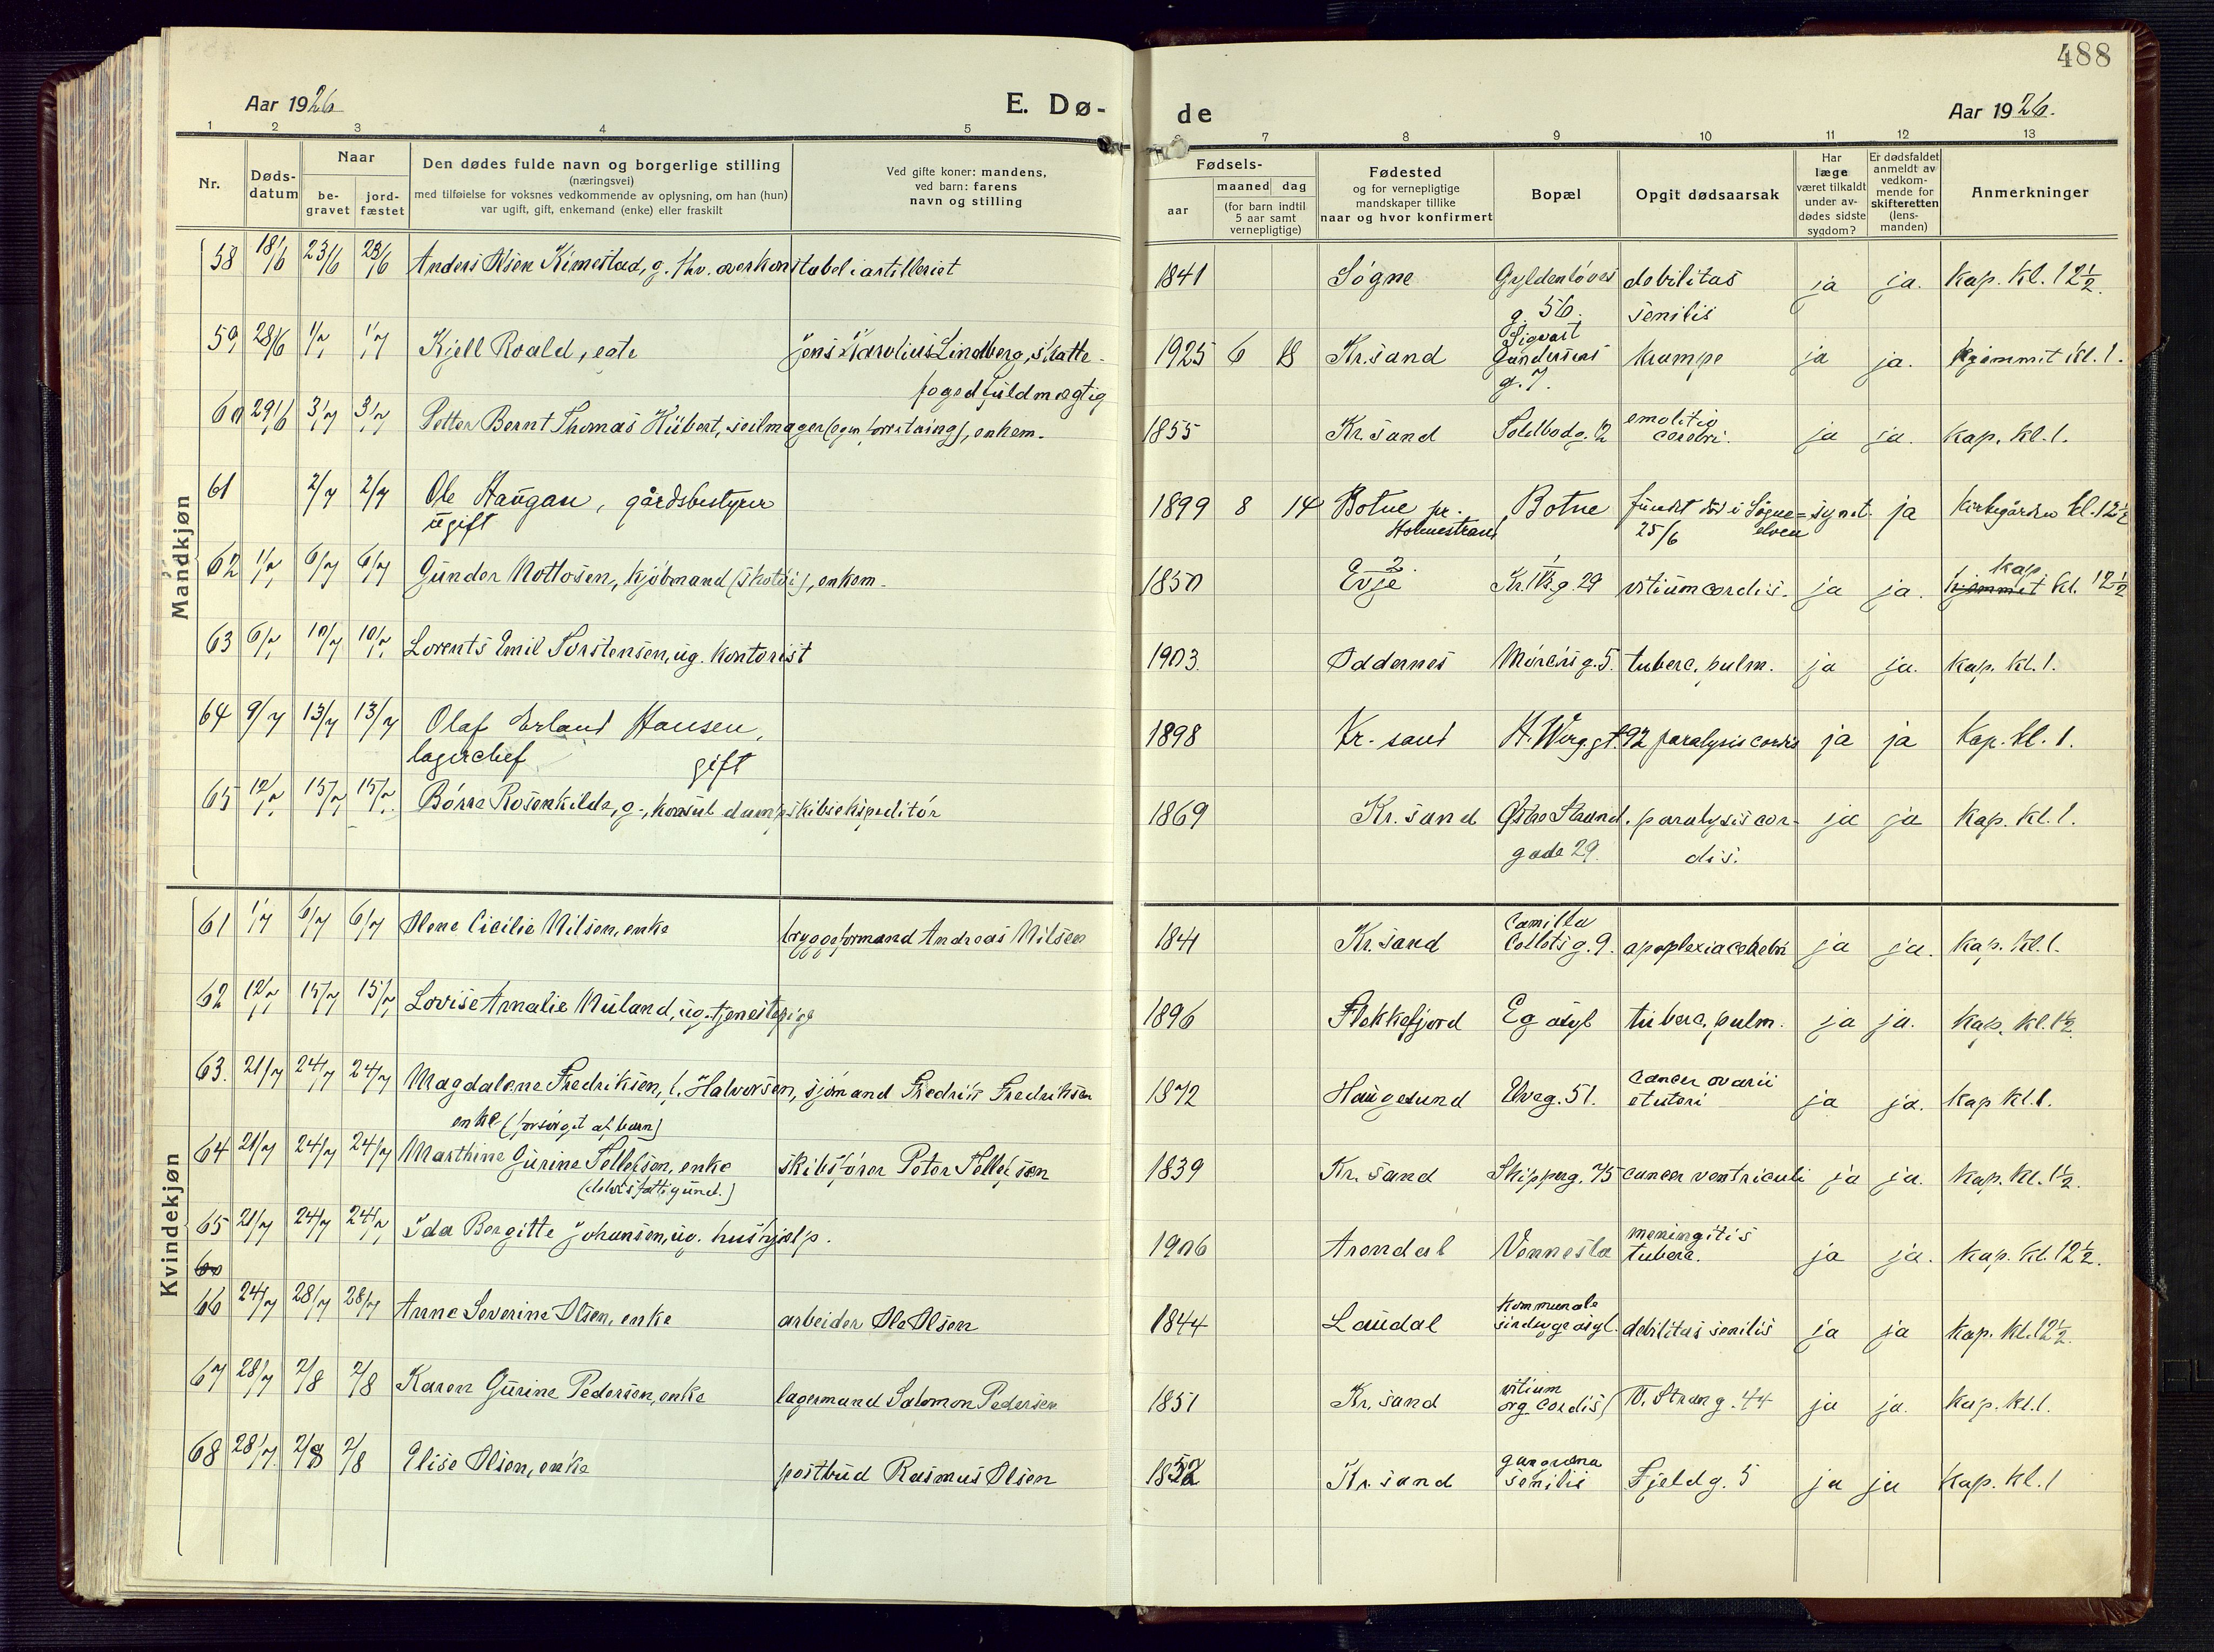 488
Aar 1926
E. Dø-
de
Aar 1926.
1 2 3 4 5 6 7 8 9 10 11 12 13
Nr.
Døds-
datum
Naar
be-
gravet
jord-
fæstet
Den dødes fulde navn og borgerlige stilling
(næringsvei)
med tilføielse for voksnes vedkommende av oplysning, om han (hun)
var ugift, gift, enkemand (enke) eller fraskilt
Ved gifte koner: mandens,
ved barn: farens
navn og stilling
Fødsels-
aar
maaned dag
(for barn indtil
5 aar samt
vernepligtige)
Fødested
og for vernepligtige
mandskaper tillike
naar og hvor konfirmert
Bopæl
Opgit dødsaarsak
Har
læge
været tilkaldt
under av-
dødes sidste
sygdom?
Er dødsfaldet
anmeldt av
vedkom-
mende for
skifteretten
(lens-
manden)
Anmerkninger
Mandkjøn
58 18/6 23/6 23/6 Anders Olsen Kimestad, g. fhv. overkonstabel i artilleriet 1841 Søgne Gyldenløves debilitas ja ja. Kap. kl. 12½.
g. 56. senilis
59, 28/6 1/7 1/7 Kjell Roald, egte Jens Karolius Lindberg, skatte- 1925 6 18 Kr.sand Sigvart krampe ja ja. hjemmet kl. 1.
fogedfuldmægtig Gundersens
g. 7.
60 29/6 3/7 3/7 Petter Bernt Thomas Hübert, seilmager (egen forretning), enkem. 1855 Kr.sand Toldbodg. 12 emolitio ja ja. Kap. kl. 1.
cerebri.
61 2/7 2/7 Ole Haugan, gårdsbestyrer 1899 8 14 Botne pr. Botne fundet død i Søgne- synet. ja Kirkegården kl. 12½
ugift Holmestrand 25/6 elven
62 1/7 6/7 6/7 Gunder Mottosen, kjøbmand (skotøi), enkem. 1850 Evje Kr. IV.g. 29 vitium cordis. ja ja. hjemmet kap kl. 12½
63 6/7 10/7 10/7 Lorents Emil Torstensen, ug. kontorist 1903. Oddernes Mórchs g. 5. tuberc. pulm. ja ja. Kap. kl. 1.
64 9/7 13/7 13/7 Olaf Erland Hansen, 1898 Kr.sand H. Werg.gt. 92 paralysis cordis ja ja Kap. kl. 1.
lagerchef gift
65 12/7 15/7 15/7 Børre Rosenkilde, g., konsul dampskibsekspeditør 1869 Kr.sand Østre Strand. paralysis cor- ja ja Kap. kl. 1.
gade 29. dis.
Kvindekjøn
61 1/7 6/7 6/7 Olene Cicilie Nilsen, enke bryggeformand Andreas Nilsen 1841 Kr.sand Camilla apoplexia cerebri ja ja. Kap. kl. 1.
Colletsg. 9.
62 12/7 15/7 15/7 Lovise Amalie Nuland, ug. tjenestepige 1896 Flekkefjord Eg asyl tuberc. pulm. ja ja. Kap. kl. 1½
63. 21/7 24/7 24/7 Magdalene Fredriksen, f. Halvorsen, sjømand Fredrik Fredriksen 1872 Haugesund Elveg. 51. cancer ovarii ja ja. Kap kl. 1.
enke (forsørget af barn) et uteri
64 21/7 24/7 24/7 Marthine Gurine Tellefsen, enke skibsfører Peter Tellefsen 1839 Kr.sand Skipperg. 75 cancer ventriculi ja ja. Kap. kl. 1½.
(delvis fattigund.)
65 21/7 24/7 24/7 Ida Bergitte Johansen, ug. hushjelp. 1906 Arendal Vennesla meningitis ja ja. Kap. kl. 12½.
tuberc.
66 24/7 28/7 28/7 Anne Severine Olsen, enke arbeider Ole Olsen 1844 Laudal kommunale debilitas senilis ja ja Kap. kl. 12½.
sindssygeasyl.
67 28/7 2/8 2/8 Karen Gurine Pedersen, enke lagermand Salomon Pedersen 1851 Kr.sand vitium Ø. Strang. 44 ja ja. Kap. kl. 1.
org. cordis
68 28/7. 2/8 2/8 Elise Olsen, enke postbud Rasmus Olsen 1852 Kr.sand gangræna Fjeldg. 5 ja ja Kap. kl. 1
senilis